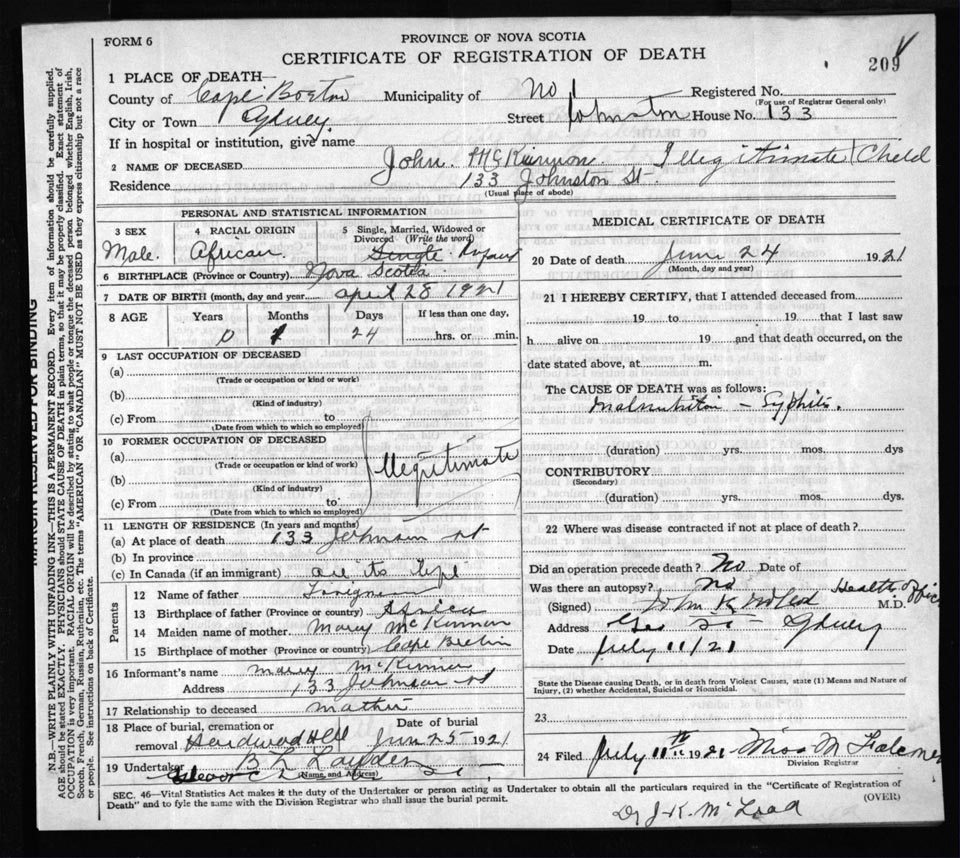 FORM 6
PROVINCE OF NOVA SCOTIA
CERTIFICATE OF REGISTRATION OF DEATH
209
1 PLACE OF DEATH—
County of Cape Breton Municipality of No Registered No.
(For use of Registrar General only)
City or Town Sydney Street Johnston House No. 133
If in hospital or institution, give name
2 NAME OF DECEASED John McKinnon. Illegitimate Child
Residence 133 Johnston St.
(Usual place of abode)
PERSONAL AND STATISTICAL INFORMATION
3 SEX 4 RACIAL ORIGIN 5 Single, Married, Widowed or Divorced (Write the word)
Male. African Single
6 BIRTHPLACE (Province or Country) Nova Scotia
7 DATE OF BIRTH (month, day and year) april 28 1921
8 AGE Years Months Days If less than one day,
0 1 24 hrs. or min.
9 LAST OCCUPATION OF DECEASED
(a)
(Trade or occupation or kind or work)
(b)
(Kind of industry)
(c) From to
(Date from which to which so employed)
10 FORMER OCCUPATION OF DECEASED
(a)
(Trade or occupation or kind of work)
Illegitimate
(b)
(Kind of industry)
(c) From to
(Date from which to which so employed)
11 LENGTH OF RESIDENCE (In years and months)
(a) At place of death 133 Johnson st
(b) In province
(c) In Canada (if an immigrant) all its life
Parents
12 Name of father Foreigner
13 Birthplace of father (Province or country) Africa
14 Maiden name of mother Mary McKinnon
15 Birthplace of mother (Province or country) Cape Breton
16 Informant's name Mary McKinnon
Address 133 Johnson st
17 Relationship to deceased mother
18 Place of burial, cremation or removal Hardwood Hill Date of burial Jun 25 1921
19 Undertaker B L Layden
(Name and Address)
MEDICAL CERTIFICATE OF DEATH
20 Date of death June 24 1921
(Month, day and year)
21 I HEREBY CERTIFY, that I attended deceased from
19 to 19 that I last saw
h alive on 19 and that death occurred, on the
date stated above, at m.
The CAUSE OF DEATH was as follows:
Malnutrition — Syphilis.
(duration) yrs. mos. dys
CONTRIBUTORY
(Secondary)
(duration) yrs. mos. dys.
22 Where was disease contracted if not at place of death?
Did an operation precede death? No Date of
Was there an autopsy? No
(Signed) Health Offic M.D.
Address Geo St — Sydney
Date July 11/21
State the Disease causing Death, or in death from Violent Causes, state (1) Means and Nature of
Injury, (2) whether Accidental, Suicidal or Homicidal.
23
24 Filed July 11th 1921 Miss M
Division Registrar
SEC. 46—Vital Statistics Act makes it the duty of the Undertaker or person acting as Undertaker to obtain all the particulars required in the "Certificate of Registration of
Death" and to fyle the same with the Division Registrar who shall issue the burial permit.
(OVER)
Dr J. K. McLeod
MARGIN RESERVED FOR BINDING
N.B.—WRITE PLAINLY WITH UNFADING INK—THIS IS A PERMANENT RECORD. Every item of information should be carefully supplied.
AGE should be stated EXACTLY. PHYSICIANS should STATE CAUSE OF DEATH in plain terms, so that it may be properly classified. Exact statement of
OCCUPATION is very important. RACIAL ORIGIN will be described by stating to what people or tongue the deceased person belonged whether English, Irish,
Scotch, French, German, Russian, Ruthenian, etc. The terms "AMERICAN" or "CANADIAN" MUST NOT BE USED as they express citizenship but not a race
or people. See instructions on back of Certificate.